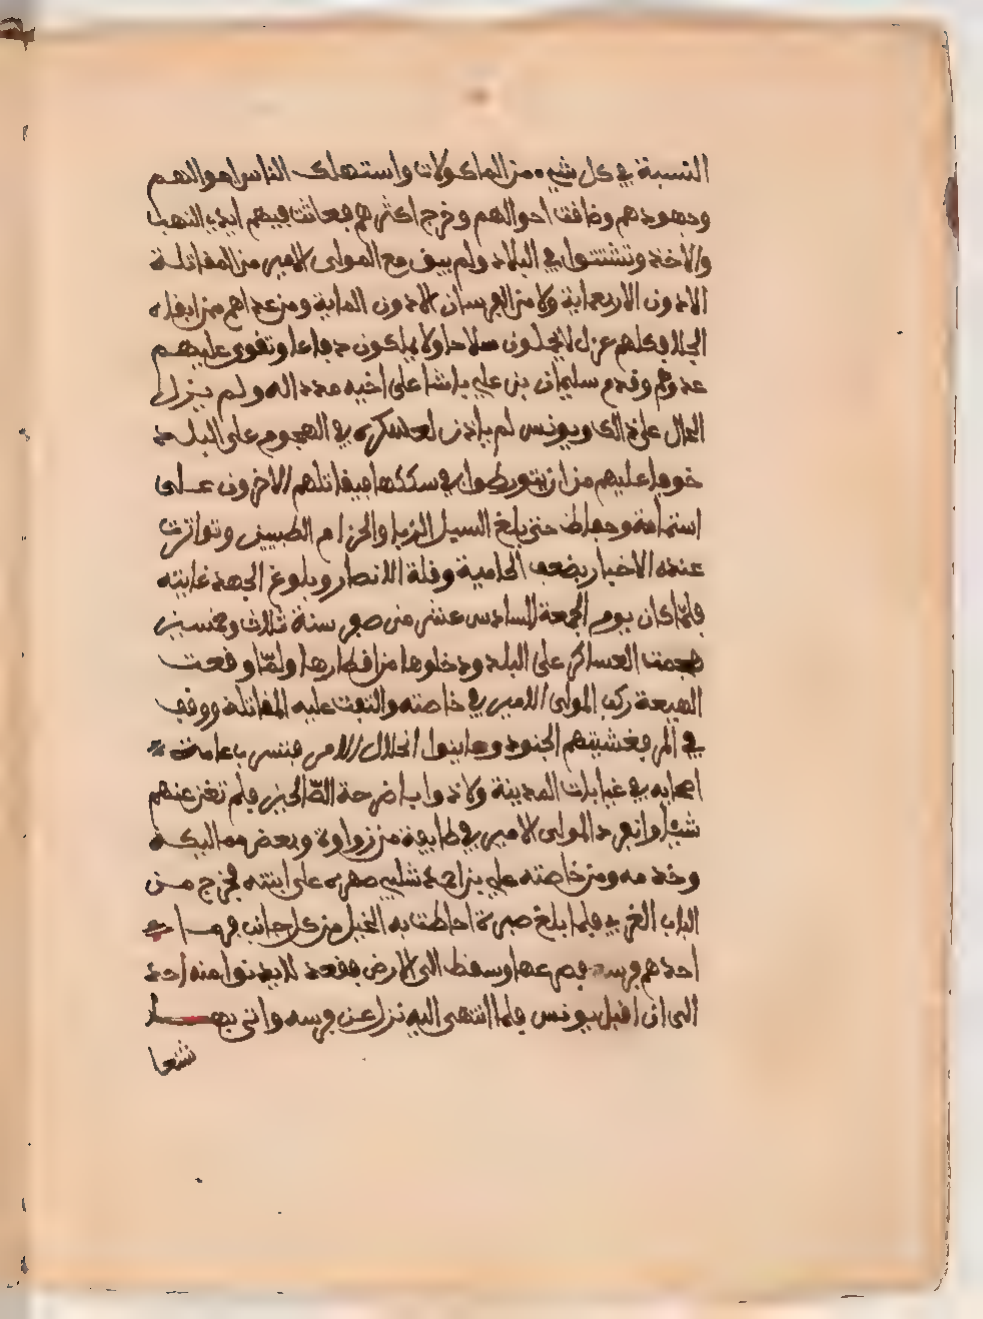 النسبة في كل شيء من الماكولات واستهلك الناس اموالهم
وجهودهم وضاقت احوالهم وخرج اكثرهم فعاثت فيهم ايدي النهب
والاخذ وتشتتوا في البلاد ولم يبق مع المولى الامير من المقاتلة
الا دون الاربعماية ولا من الفرسان الا دون الماية ومن عداهم من
الجلا فكلهم عزل لا يحملون سلاحا ولا يملكون دفاعا وتقوى عليهم
عدوهم وقدم سليمان بن علي باشا على اخيه مددا له ولم يزل
الحال على ذلك ويونس لم ياذن لعسكره في الهجوم على البلد
خوفا عليهم من ان يتورطوا في سككها فيقاتلهم الاخرون على
استماتة وحفاظ حتى بلغ السيل الزبا والحزام الطبيين وتواترت
عنده الاخبار بضعف الحامية وقلة الانصار وبلوغ الجهد غايته
فلما كان يوم الجمعة السادس عشر من صفر سنة ثلاث وخمسين
هجمت العساكر على البلد ودخلوها من اقطارها ولما وقعت
الهيعة ركب المولى الامير في خاصته والتفت عليه المقاتلة ووقف
في فغشيتهم الجنود وعاينوا انحلال الامر فتسرب عامة
اصحابه في غيابات المدينة ولاذوا باضرحة الصالحين فلم تغن عنهم
شيئا وانفرد المولى الامير في طايفة من زواوة وبعض مماليكه
وخدمه ومن خاصته علي بن احمد شلبي صهره على ابنته فخرج من
الباب الغربي فلما بلغ صبرة احاطت به الخيل من كل جانب فرماح
احدهم فرسه فصرعها وسقط الى الارض فقعد لا يدنوا منه احد
الى ان اقبل يونس فلما انتهى اليه نزل عن فرسه واتى بها
شعا